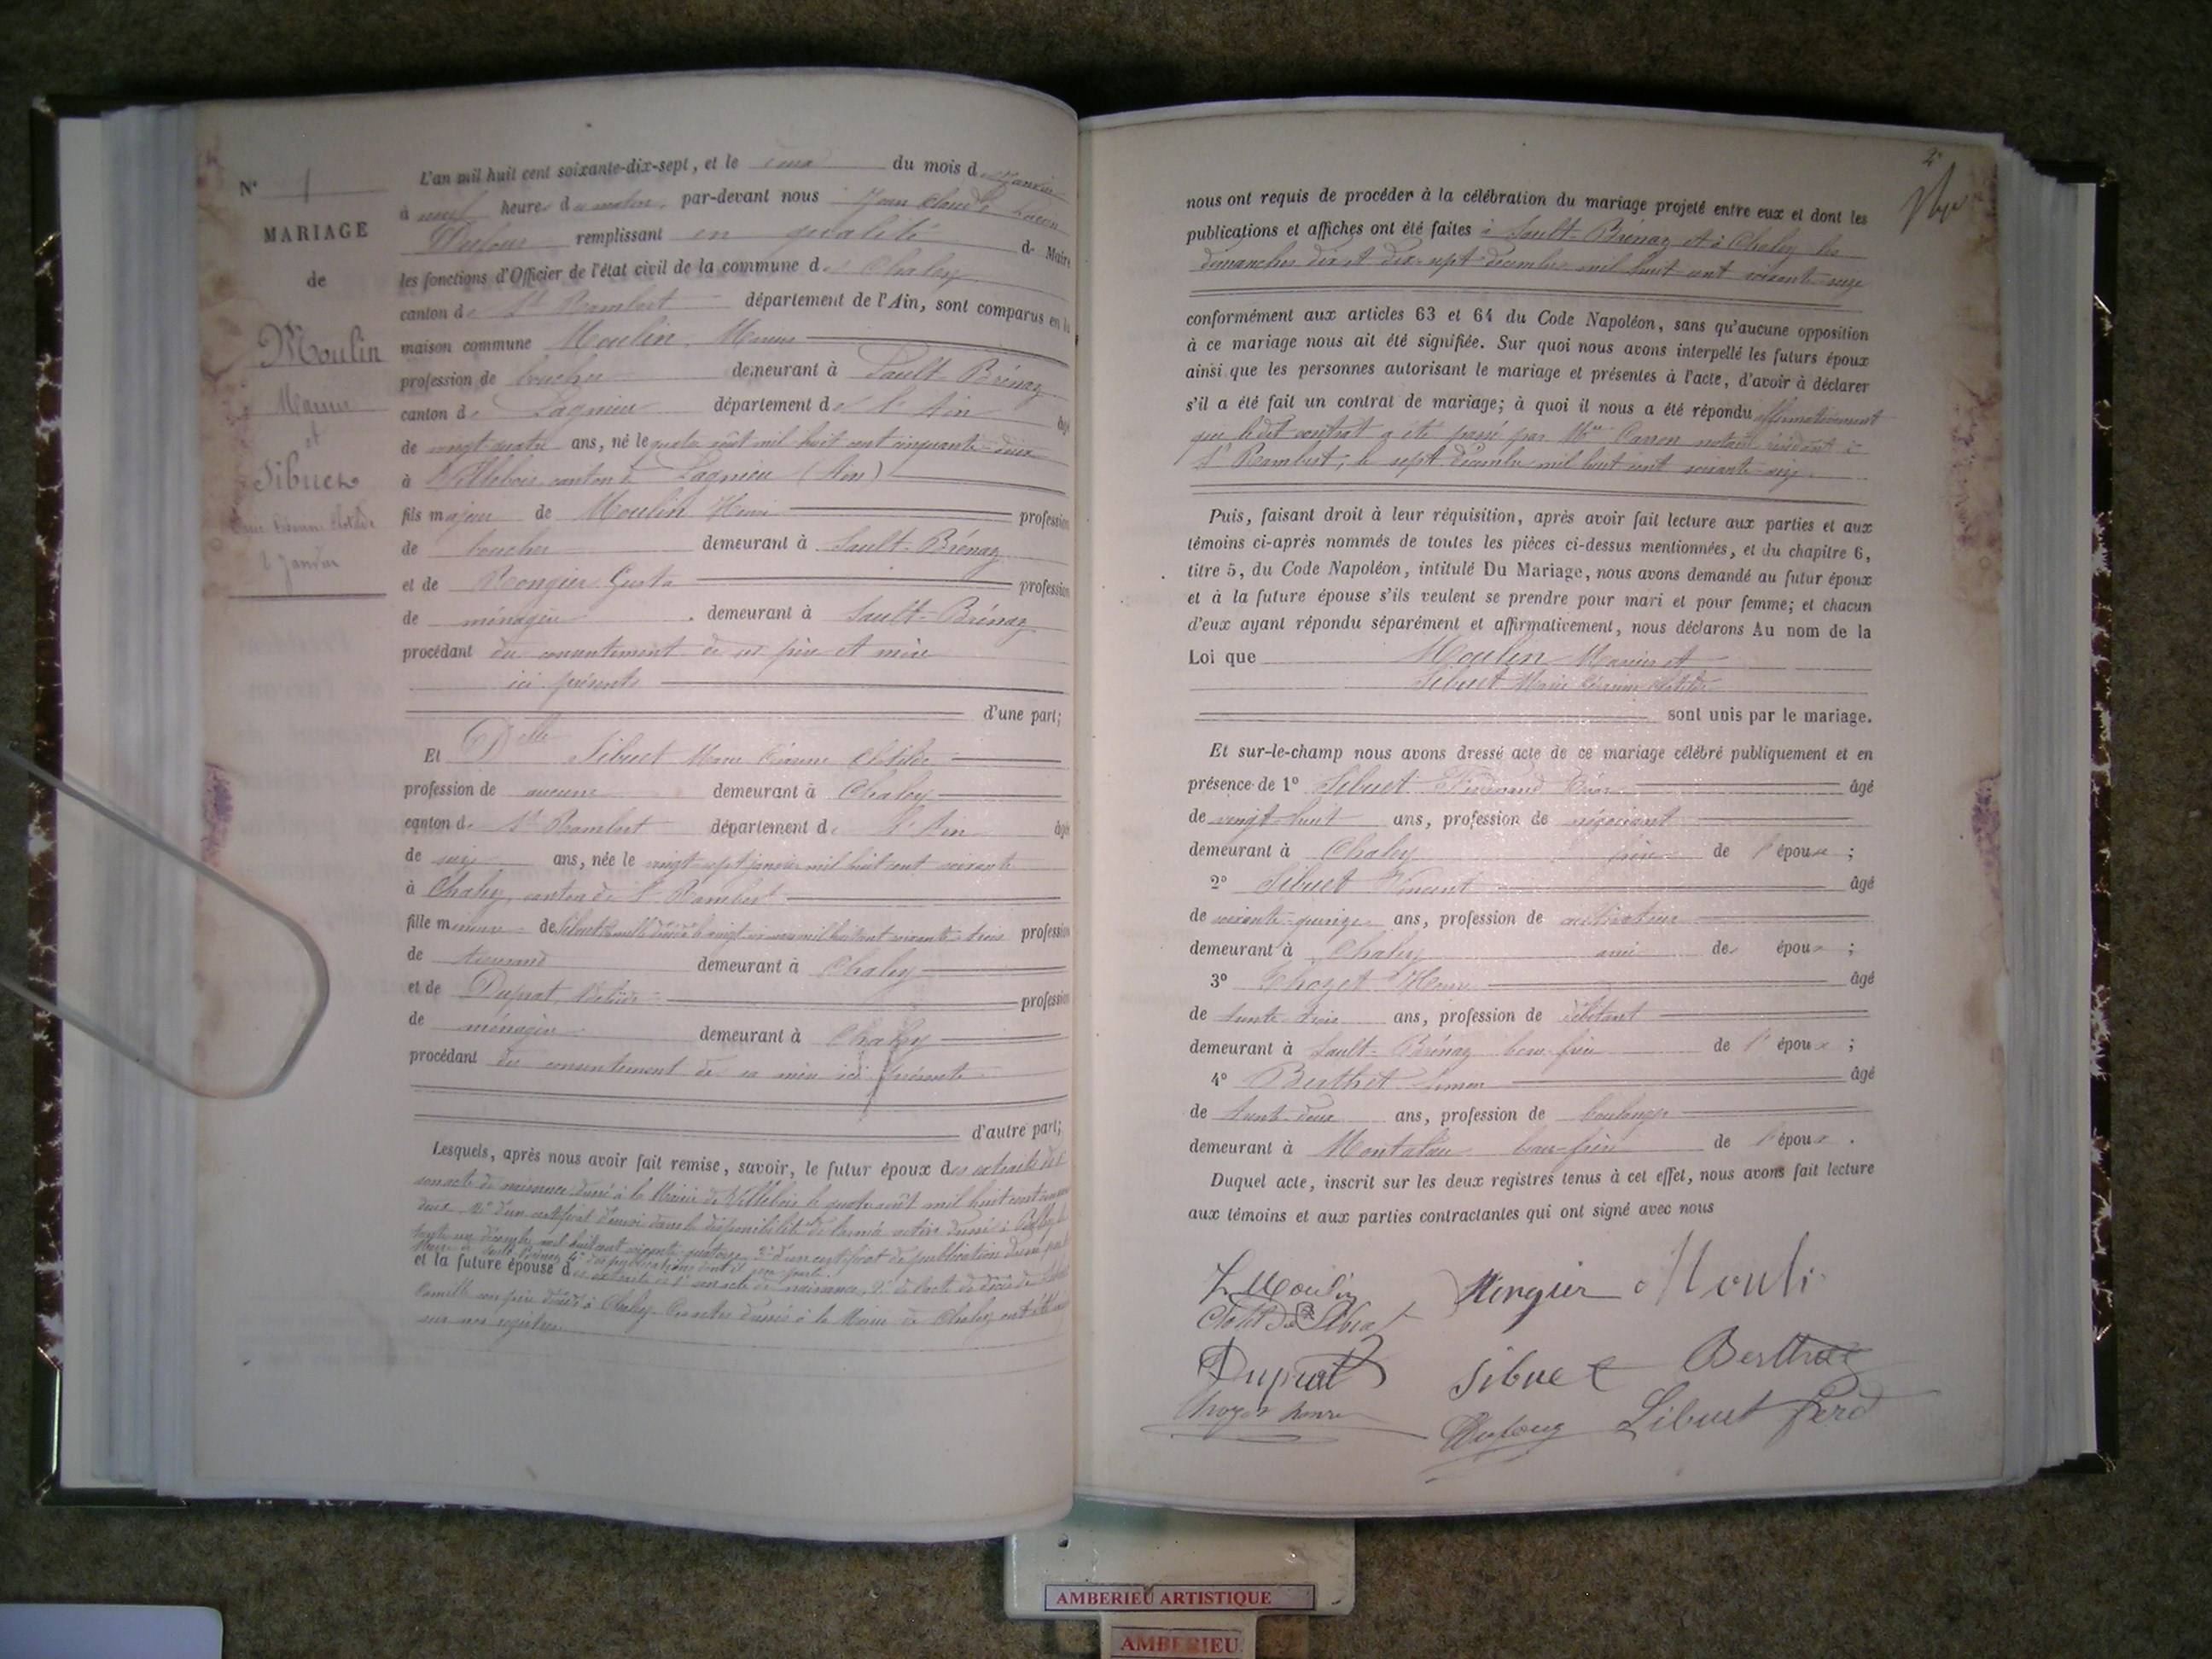 N° 1
MARIAGE
de
Moulin
Marius
et
Sibuet
Marie Césarine Clotilde
2 Janvier
L'an mil huit cent soixante-dix-sept, et le deux du mois de Janvier
à neuf heures du matin, par-devant nous Jean Claude
Dufour remplissant en qualité de Maire
les fonctions d'Officier de l'état civil de la commune de Chaley
canton de St Rambert département de l'Ain, sont comparus en la
maison commune Moulin Marius
profession de boucher demeurant à Sault-Brénaz
canton de Lagnieu département de l'Ain âgé
de vingt quatre ans, né le quatre août mil huit cent cinquante-deux
à Villebois canton de Lagnieu (Ain)
fils majeur de Moulin Henri profession
de boucher demeurant à Sault-Brénaz
et de profession
de ménagère demeurant à Sault-Brénaz
procédant du consentement de ses père et mère
ici présents
d'une part;
Et Delle Sibuet Marie Césarine Clotilde
profession de aucune demeurant à Chaley
canton de St Rambert département de l'Ain âgée
de seize ans, née le vingt sept janvier mil huit cent soixante
à Chaley, canton de St Rambert
fille mineure de Sibuet Camille décédé le vingt mil huit cent soixante-trois profession
de tisserand demeurant à Chaley
et de Duprat, Clotilde profession
de ménagère demeurant à Chaley
procédant du consentement de sa mère ici présente
d'autre part;
Lesquels, après nous avoir fait remise, savoir, le futur époux des extraits de 1°
son acte de naissance dressé à la Mairie de Villebois le quatre août mil huit cent cinquante
deux 2° d'un certificat d'envoi dans la disponibilité de l'armée active dressé à Belley le
trente un décembre mil huit cent soixante quatorze 3° d'un certificat de publication dressé par le
Maire de Sault-Brénaz 4° des publications
et la future épouse des extraits de 1° son acte de naissance, 2° de l'acte de décès de Sibuet
Camille son père décédé à Chaley. Ces actes dressés à la Mairie de Chaley
sur nos registres
2
nous ont requis de procéder à la célébration du mariage projeté entre eux et dont les
publications et affiches ont été faites à Sault-Brénaz et à Chaley les
dimanches dix et dix-sept décembre mil huit cent soixante-seize
conformément aux articles 63 et 64 du Code Napoléon, sans qu'aucune opposition
à ce mariage nous ait été signifiée. Sur quoi nous avons interpellé les futurs époux
ainsi que les personnes autorisant le mariage et présentes à l'acte, d'avoir à déclarer
s'il a été fait un contrat de mariage; à quoi il nous a été répondu affirmativement
que ledit contrat a été passé par Me notaire résidant à
St Rambert, le sept décembre mil huit cent soixante-seize.
Puis, faisant droit à leur réquisition, après avoir fait lecture aux parties et aux
témoins ci-après nommés de toutes les pièces ci-dessus mentionnées, et du chapitre 6,
titre 5, du Code Napoléon, intitulé Du Mariage, nous avons demandé au futur époux
et à la future épouse s'ils veulent se prendre pour mari et pour femme; et chacun
d'eux ayant répondu séparément et affirmativement, nous déclarons Au nom de la
Loi que Moulin Marius et
Sibuet Marie Césarine Clotilde
sont unis par le mariage.
Et sur-le-champ nous avons dressé acte de ce mariage célébré publiquement et en
présence de 1° Sibuet Ferdinand César âgé
de vingt-huit ans, profession de négociant
demeurant à Chaley frère de l'épouse ;
2° Sibuet Vincent âgé
de soixante-quinze ans, profession de cultivateur
demeurant à Chaley ami des époux ;
3° Chozet Henri âgé
de trente trois ans, profession de débitant
demeurant à Sault-Brénaz beau-frère de l'époux ;
4° Berthet Simon âgé
de trente-deux ans, profession de boulanger
demeurant à Montalieu beau-frère de l'époux .
Duquel acte, inscrit sur les deux registres tenus à cet effet, nous avons fait lecture
aux témoins et aux parties contractantes qui ont signé avec nous
Moulin Mongier Mouli
Clotilde Sibuet
Duprat Sibuet Berthet
Chozet henri Dufour Sibuet Ferd
AMBERIEU ARTISTIQUE
AMBERIEU